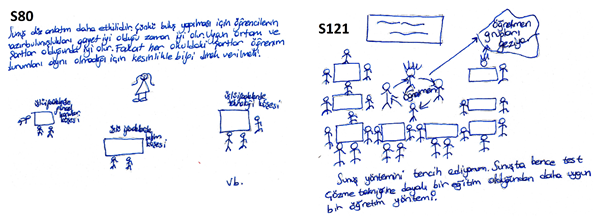 S80
Sunuş düz anlatım daha etkilidir. Çünkü buluş yapılması için öğrencilerin
hazırbulunuşlukları gayet iyi olduğu zaman iyi olur. Uygun ortam ve
şartlar olduğunda iyi olur. Fakat her okuldaki şartlar öğrenim
durumları aynı olmadığı için kesinlikle bilgi direk verilmeli.
köşesi
köşesi
köşesi
vb.
S121
öğretmen
grupları
geziyor
öğretmen
Sunuş yöntemini tercih ediyorum. Sunuşta bence test
çözme tekniğine dayalı bir eğitim olduğundan daha uygun
bir öğretim yöntemi.